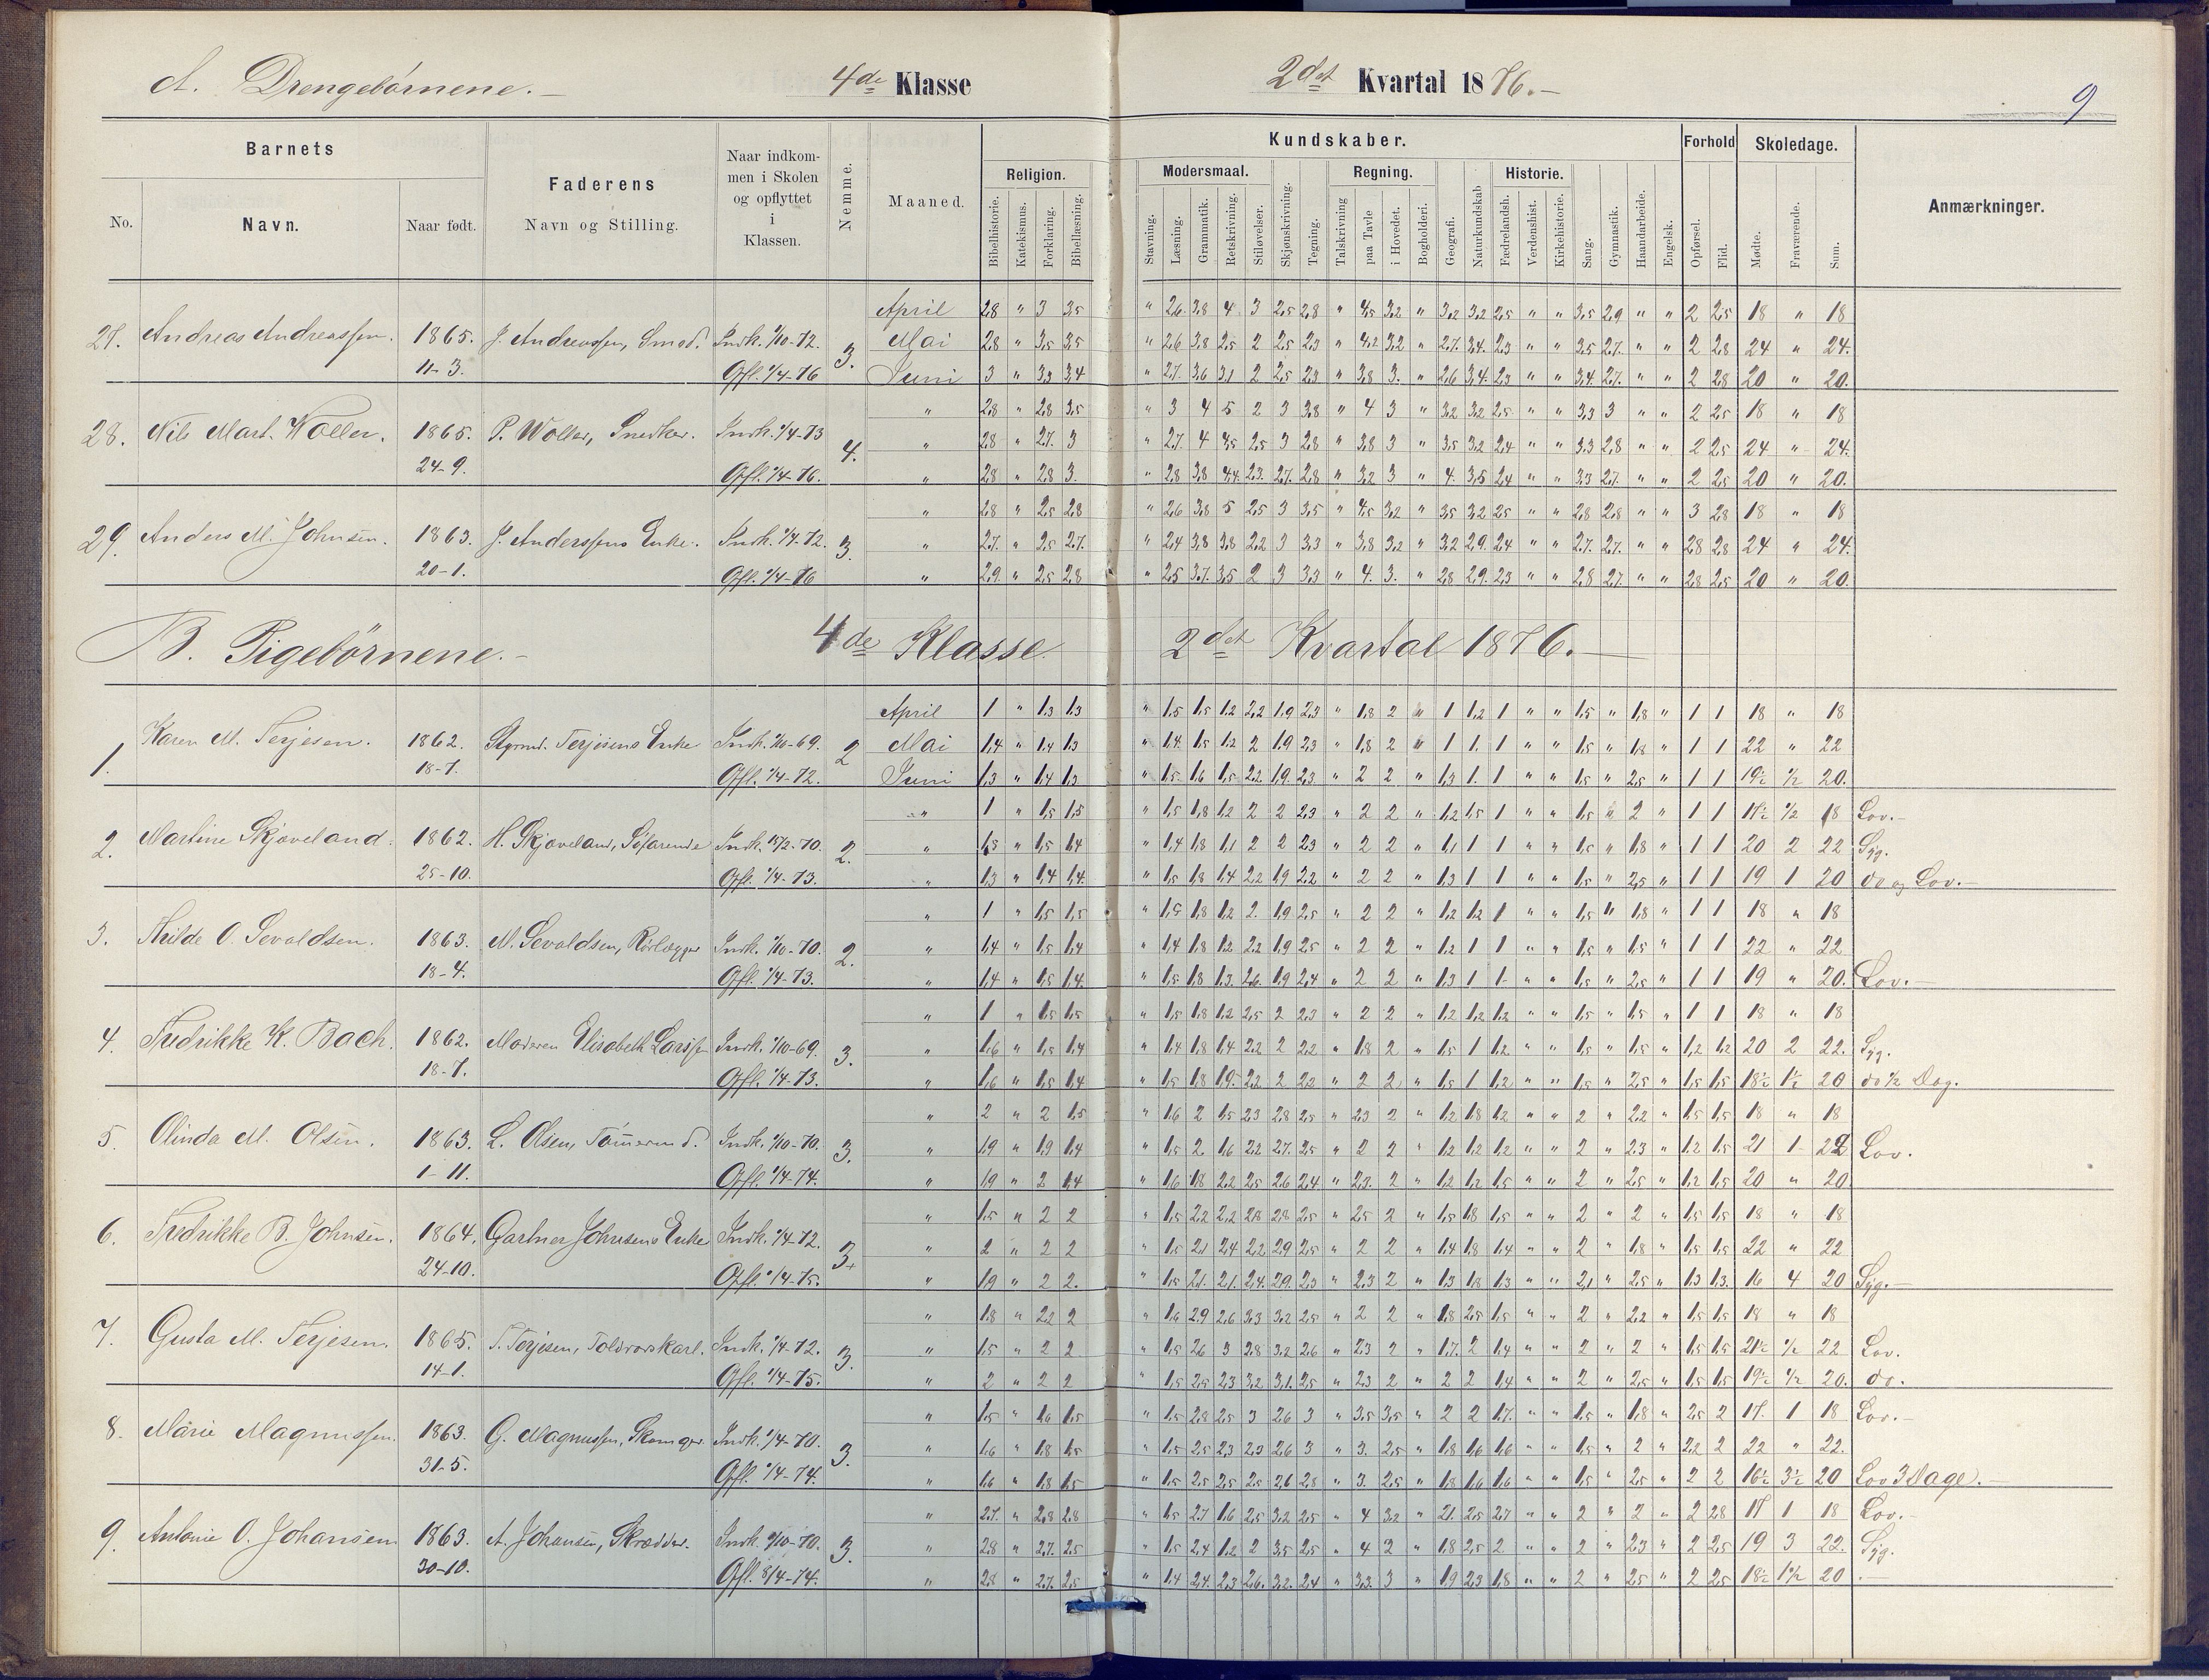 A. Drengebörnene.- 4de Klasse 2det Kvartal 1876.- 9
Barnets
No. Navn. Naar født.
Faderens
Navn og Stilling.
Naar indkom-
men i Skolen
og opflyttet
i
Klassen.
Nemme.
Maaned.
Kundskaber.
Religion. Modersmaal. Regning. Historie.
Bibelhistorie. Katekismus. Forklaring. Bibellæsning.
Stavning. Læsning. Grammatik. Retskrivning. Stiløvelser. Skjønskrivning. Tegning.
Talskrivning paa Tavle i Hovedet. Bogholderi. Geografi. Naturkundskab Fædrelandsh. Verdenshist. Kirkehistorie.
Sang. Gymnastik. Haandarbeide. Engelsk.
Forhold
Opførsel. Flid.
Skoledage.
Mødte. Fraværende. Sum.
Anmærkninger.
April 2,8 " 3 3,5 " 2,6 3,8 4 3 2,5 2,8 " 4,5 3,2 " 3,2 3,2 2,5 " " 3,5 2,9 " " 2 2,5 18 " 18
27. Andreas Andreassen. 1865. J. Andreassen, Smed. Indk. 1/10-72. 3. Mai 2,8 " 3,5 3,5 " 2,6 3,8 2,5 2 2,5 2,3 " 4,2 3,2 " 2,7. 3,4. 2,3 " " 3,5 2,7. " " 2 2,8 24 " 24.
11-3. Opfl. 1/4-76 Juni 3 " 3,3 3,4 " 2,7. 3,6 3,1 2 2,5 2,3 " 3,8 3. " 2,6 3,4. 2,3 " " 3,4. 2,7. " " 2 2,8 20 " 20.
" 2,8 " 2,8 3,5 " 3 4 5 2 3 3,8 " 4 3 " 3,2 3,2 2,5 " " 3,3 3 " " 2 2,5 18 " 18
28. Nils Mart. Woller. 1865. P. Woller, Snedker. Indk. 1/4-73 4. " 2,8 " 2,7. 3 " 2,7. 4 4,5 2,5 3 2,8 " 3,8 3 " 3,5 3,2 2,4 " " 3,3 2,8 " " 2 2,5 24 " 24.
24-9. Opfl. 1/4-76. " 2,8 " 2,8 3. " 2,8 3,8 4,4. 2,3. 2,7. 2,8 " 3,2 3 " 4. 3,5 2,4 " " 3,3 2,7. " " 2 2,5 20 " 20.
" 2,8 " 2,5 2,8 " 2,6 3,8 5 2,5 3 3,5 " 4,5 3,2 " 3,5 3,2 2,5 " " 2,8 2,8 " " 3 2,8 18 " 18
29. Anders M. Johnsen. 1863. J. Anderssens Enke. Indk. 1/4-72. 3. " 2,7. " 2,5 2,7. " 2,4 3,8 3,8 2,2 3 3,3 " 3,8 3,2 " 3,2 2,9. 2,4 " " 2,7. 2,7. " " 2,8 2,8 24 " 24.
20-1. Opfl. 1/4-76 " 2,9. " 2,5 2,8 " 2,5 3,7. 3,5 2 3 3,3 " 4. 3. " 2,8 2,9. 2,3 " " 2,8 2,7. " " 2,8 2,5 20 " 20.
B. Pigebörnene.- 4de Klasse. 2det Kvartal 1876.-
April 1 " 1,3 1,3 " 1,5 1,5 1,2 2,2 1,9 2,3 " 1,8 2 " 1 1,2 1 " " 1,5 " 1,8 " 1 1 18 " 18
1. Karen M. Terjesen. 1862. Terjesens Enke Indk. 1/10-69. 2 Mai 1,4 " 1,4 1,3 " 1,4. 1,5 1,2 2 1,9 2,3 " 1,8 2 " 1 1. 1 " " 1,5 " 1,8 " 1 1 22 " 22
18-7. Opfl. 1/4-72. Juni 1,3 " 1,4 1,3 " 1,5. 1,6 1,5 2,2 1,9. 2,3 " 2 2 " 1,3 1. 1 " " 1,5 " 2,5 " 1 1 19½ ½ 20.
" 1 " 1,5 1,5 " 1,5 1,8 1,2 2 2 2,3 " 2 2 " 1,2 1,5 1 " " 1,5 " 2 " 1 1 17½ ½ 18 Lov.-
2. Martine Skjaveland. 1862. H. Skjaveland, Söfarende Indk. 15/2-70. 2. " 1,3 " 1,5 1,4 " 1,4 1,8 1,1 2 2 2,3 " 2 2 " 1,1 1 1 " " 1,5 " 1,8 " 1 1 20 2 22 Syg.
25-10. Opfl. 1/4-73. " 1,3 " 1,4 1,4. " 1,5 1,8 1,4 2,2 1,9 2,2 " 2 2 " 1,3 1 1 " " 1,5 " 2,5 " 1 1 19 1 20 do og Lov.-
" 1 " 1,5 1,5 " 1,5 1,8 1,2 2. 1,9 2,5 " 2 2 " 1,2 1,2 1 " " 1,5 " 1,8 " 1 1 18 " 18
3. Hilde O. Sevaldsen. 1863. M. Sevaldsen, Rörlægger Indk. 1/10-70. 2. " 1,4 " 1,5 1,4 " 1,4 1,8 1,2 2,2 1,9 2,5 " 2 2 " 1,2 1 1 " " 1,5 " 1,5 " 1 1 22 " 22
18-4. Opfl. 1/4-73. " 1,4 " 1,5 1,4. " 1,5 1,8 1,3. 2,6. 1,9 2,4 " 2 2 " 1,3 1 1 " " 1,5 " 2,5 " 1 1 19 " 20. Lov.-
" 1 " 1,5 1,5 " 1,5 1,8 1,2 2,5 2 2,3 " 2 2 " 1,2 1,2 1,2 " " 1,5 " 1,5 " 1 1 18 " 18
4. Fredrikke K. Bach. 1862. Moderen Elisabeth Larssen Indk. 1/10-69. 3. " 1,6 " 1,5 1,4 " 1,4 1,8 1,4 2,2 2 2,2 " 1,8 2 " 1,5 1 1,2 " " 1,5 " 1,5 " 1,2 1,2 20 2 22. Syg.
18-7. Opfl. 1/4-73. " 1,6 " 1,5 1,4 " 1,5 1,8 1,9. 2,2 2 2,2 " 2 2 " 1,5 1 1,2 " " 1,5 " 2,5 " 1,5 1,5 18½ 1½ 20 do ½ Dag.
" 2 " 2 1,5 " 1,6 2 1,5 2,3 2,8 2,5 " 2,3 2 " 1,2 1,8 1,2 " " 2 " 2,2 " 1,5 1,5 18 " 18
5. Olinda M. Olsen. 1863. L. Olsen, Tömermd. Indk. 1/10-70. 3. " 1,9 " 1,9 1,4 " 1,5 2 1,6 2,2 2,7. 2,5 " 2 2 " 1,2 1,2 1,2 " " 2 " 2,3 " 1,2 1,5 21 1 22 Lov.
1-11. Opfl. 1/4-74. " 1,9 " 2 1,4 " 1,6 1,8 2,2 2,5 2,6 2,4 " 2,3. 2 " 1,2 1,2 1,5 " " 2 " 2,5 " 1,2 1,5 20 " 20
" 1,5 " 2 2 " 1,5 2,2 2,2 2,8 2,8 2,5 " 2,5 2 " 1,5 1,8 1,5 " " 2 " 2 " 1,5 1,5 18 " 18
6. Fredrikke B. Johnsen. 1864. Gartner Johnsens Enke Indk. 1/4-72. 3+ " 2 " 2 2 " 1,5 2,1 2,4 2,2 2,9 2,5 " 2 2 " 1,4 1,8 1,4 " " 2 " 1,8 " 1,5 1,5 22 " 22
24-10. Opfl. 1/4-75. " 1,9 " 2 2. " 1,5 2,1. 2,1. 2,4. 2,9. 2,3 " 2,3 2 " 1,3 1,8 1,3 " " 2,1 " 2,5 " 1,3 1,3. 16 4 20 Syg.-
" 1,8 " 2,2 2 " 1,6 2,9 2,6 3,3 3,2 2,5 " 2 2 " 1,8 2,5 1,5 " " 2 " 2,2 " 1,5 1,5 18 " 18
7. Gusta M. Terjesen. 1865. T. Terjesen, Toldrorskarl. Indk. 1/4-72. 3. " 1,5 " 2 2 " 1,5 2,6 3 2,8 3,2 2,6 " 2,3 2 " 1,7. 2 1,4 " " 2 " 2 " 1,5 1,5 21½ ½ 22 Lov.
14-1. Opfl. 1/4-75. " 2 " 2 2 " 1,5 2,5 2,3 3,2 3,1. 2,5 " 2,3 2 " 2 2 1,4 " " 2 " 2,5 " 1,5 1,5 19½ ½ 20. do.
" 1,5 " 1,6 1,5 " 1,5 2,8 2,5 3 2,6 3 " 3,5 3,5 " 2 2 1,7. " " 1,5 " 1,8 " 2,5 2 17. 1 18 Lov.-
8. Marie Magnussen. 1863. G. Magnussen, Skomger. Indk. 1/4-70. 3. " 1,6 " 1,8 1,5 " 1,5 2,5 2,3 2,3 2,6 3 " 3. 2,5 " 1,8 1,6 1,6 " " 1,5 " 2 " 2,2 2 22 " 22.
31-5. Opfl. 1/4-74. " 1,6 " 1,8 1,5 " 1,5 2,5 2,5 2,5 2,6 2,8 " 3. 2,5 " 1,8 1,6 1,6 " " 1,5 " 2,5 " 2 2 16½ 3½ 20 Lov 3 Dage.-
" 2,7. " 2,8 2,8 " 1,5 2,7 1,6 2,5 3,2 2,5 " 4 3,2 " 2,1. 2,5 2,7 " " 2 " 2 " 2 2,8 17 1 18 Lov.-
9. Antonie O. Johansen 1863. A. Johansen, Skrædder. Indk. 9/10-70. 3. " 2,8 " 2,7. 2,5 " 1,5 2,4 1,2 2 3,5 2,5 " 4 3 " 1,8 2,5 2 " " 2 " 2,3 " 2 2,5 19 3 22. Syg.
30-10. Opfl. 8/4-74. " 2,8 " 2,7. 2,5 " 1,4 2,4. 2,3 2,6. 3,2. 2,4 " 3,3. 3 " 1,9 2,3 1,8 " " 2 " 2,5 " 2 2,5 18½ 1½ 20 .-